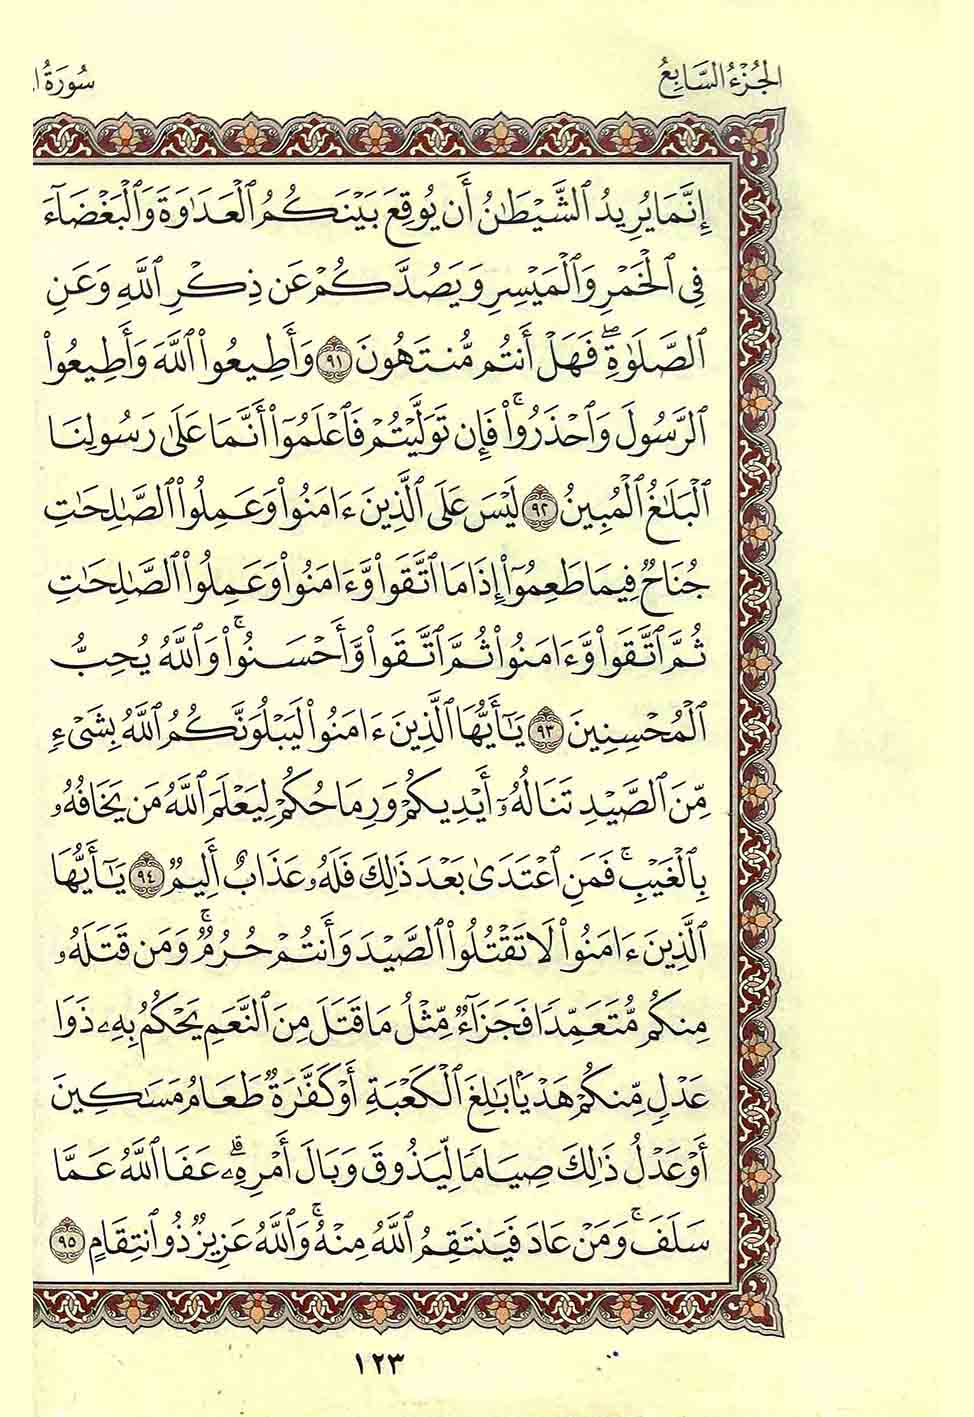 الجُزْءُ السَّابِعُ
سُورَةُ
إِنَّمَا يُرِيدُ ٱلشَّيْطَٰنُ أَن يُوقِعَ بَيْنَكُمُ ٱلْعَدَٰوَةَ وَٱلْبَغْضَآءَ
فِى ٱلْخَمْرِ وَٱلْمَيْسِرِ وَيَصُدَّكُمْ عَن ذِكْرِ ٱللَّهِ وَعَنِ
ٱلصَّلَوٰةِ ۖ فَهَلْ أَنتُم مُّنتَهُونَ ٩١ وَأَطِيعُوا۟ ٱللَّهَ وَأَطِيعُوا۟
ٱلرَّسُولَ وَٱحْذَرُوا۟ ۚ فَإِن تَوَلَّيْتُمْ فَٱعْلَمُوٓا۟ أَنَّمَا عَلَىٰ رَسُولِنَا
ٱلْبَلَٰغُ ٱلْمُبِينُ ٩٢ لَيْسَ عَلَى ٱلَّذِينَ ءَامَنُوا۟ وَعَمِلُوا۟ ٱلصَّٰلِحَٰتِ
جُنَاحٌ فِيمَا طَعِمُوٓا۟ إِذَا مَا ٱتَّقَوا۟ وَّءَامَنُوا۟ وَعَمِلُوا۟ ٱلصَّٰلِحَٰتِ
ثُمَّ ٱتَّقَوا۟ وَّءَامَنُوا۟ ثُمَّ ٱتَّقَوا۟ وَّأَحْسَنُوا۟ ۗ وَٱللَّهُ يُحِبُّ
ٱلْمُحْسِنِينَ ٩٣ يَٰٓأَيُّهَا ٱلَّذِينَ ءَامَنُوا۟ لَيَبْلُوَنَّكُمُ ٱللَّهُ بِشَىْءٍ
مِّنَ ٱلصَّيْدِ تَنَالُهُۥٓ أَيْدِيكُمْ وَرِمَاحُكُمْ لِيَعْلَمَ ٱللَّهُ مَن يَخَافُهُۥ
بِٱلْغَيْبِ ۚ فَمَنِ ٱعْتَدَىٰ بَعْدَ ذَٰلِكَ فَلَهُۥ عَذَابٌ أَلِيمٌ ٩٤ يَٰٓأَيُّهَا
ٱلَّذِينَ ءَامَنُوا۟ لَا تَقْتُلُوا۟ ٱلصَّيْدَ وَأَنتُمْ حُرُمٌ ۚ وَمَن قَتَلَهُۥ
مِنكُم مُّتَعَمِّدًا فَجَزَآءٌ مِّثْلُ مَا قَتَلَ مِنَ ٱلنَّعَمِ يَحْكُمُ بِهِۦ ذَوَا
عَدْلٍ مِّنكُمْ هَدْيًۢا بَٰلِغَ ٱلْكَعْبَةِ أَوْ كَفَّٰرَةٌ طَعَامُ مَسَٰكِينَ
أَوْ عَدْلُ ذَٰلِكَ صِيَامًا لِّيَذُوقَ وَبَالَ أَمْرِهِۦ ۗ عَفَا ٱللَّهُ عَمَّا
سَلَفَ ۚ وَمَنْ عَادَ فَيَنتَقِمُ ٱللَّهُ مِنْهُ ۗ وَٱللَّهُ عَزِيزٌ ذُو ٱنتِقَامٍ ٩٥
١٢٣